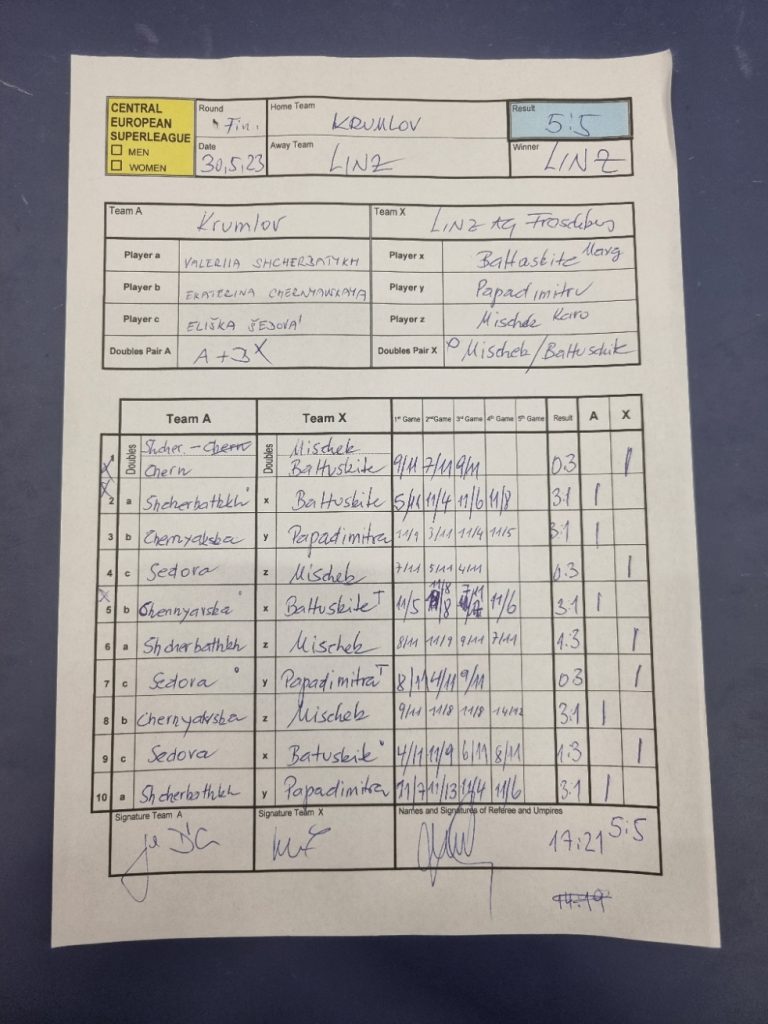 CENTRAL EUROPEAN SUPERLEAGUE
MEN
WOMEN
Round Fin.
Home Team KRUMLOV
Result 5:5
Date 30,5,23
Away Team LINZ
Winner LINZ
Team A Krumlov Team X LINZ AG Froschberg
Player a VALERIIA SHCHERBATYKH Player x Battuskite Marg
Player b EKATERINA CHERNYAVSKAYA Player y Papadimitru
Player c ELIŠKA ŠEDOVÁ Player z Mischek Karo
Doubles Pair A A+B X Doubles Pair X Mischek/Battuschik
Team A Team X 1st Game 2nd Game 3rd Game 4th Game 5th Game Result A X
1 Doubles Shcher. - Chern Doubles Mischek
Chern Baltuskite 9/11 7/11 9/11 0:3 |
2 a Shcherbathkh x Baltuskite 5/11 11/4 11/6 11/8 3:1 |
3 b Chernyakska y Papadimitra 11/9 3/11 11/4 11/5 3:1 |
4 c Sedova z Mischek 7/11 5/11 4/11 0:3 |
5 b Chennyavska x Baltuskite T 11/5 11/8 7/11 11/6 3:1 |
6 a Shcherbathkh z Mischek 8/11 11/9 9/11 7/11 1:3 |
7 c Sedova y Papadimitra T 8/11 4/11 9/11 0:3 |
8 b Chernyakska z Mischek 9/11 11/8 11/8 14/12 3:1 |
9 c Sedova x Batuskite 4/11 11/9 6/11 8/11 1:3 |
10 a Shcherbathkh y Papadimitra 11/7 11/13 11/4 11/6 3:1 |
Signature Team A Signature Team X Names and Signatures of Referee and Umpires
17:21 5:5
14:19